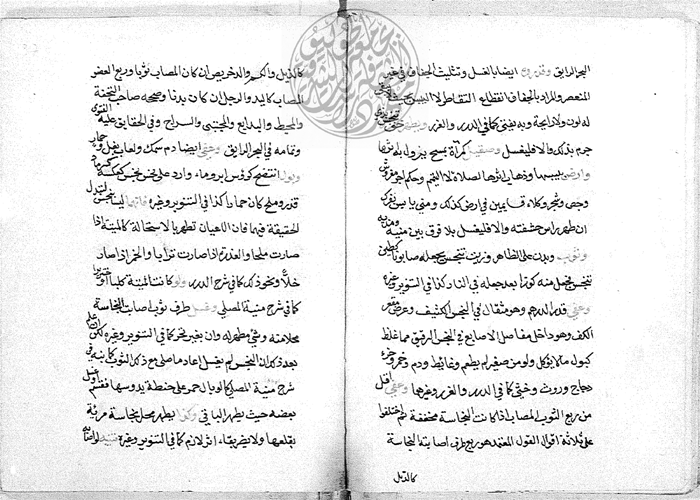 البحر الرايق وقدروع ايضا بالغسل وتثليث الجفاف في غير
المنعصر والمراد بالجفاف انقطاع التقاطر لا اليبس
له لون ولا رايحة وبه يفتى كما في الدرر والغرر ويطهر
جرم بذلك والا فيغسل وصقيل كمرآة بمسح يزول به اثرها
وارض بيبسها وذهاب اثرها لصلاة لا التيمم وحكم اجر مفرش
وخص وشجر وكلاء قايمين في ارض كذلك ومني يابس بفرك
ان طهر راس حشفته والا فيغسل بلا فرق بين منيه
وثوب وبدن على الظاهر وزيت تنجس بجعله صابونا كطين
تنجس فجعل منه كوزا بعد جعله في النار كذا في التنوير وغيره
وعفي قدر الدرهم وهو مثقال في النجس الكثيف وعرض مقعر
الكف وهو داخل مفاصل الاصابع في النجس الرقيق مما غلظ
كبول ما لا يؤكل ولو من صغير لم يطعم وغايط ودم وخمر وخرء
دجاج وروث وخثى كما في الدرر والغرر وغيرها وعفي اقل
من ربع الثوب المصاب اذا كانت النجاسة مخففة ثم اختلفوا
على ثلاثة اقوال القول المعتمد هو ربع طرف اصابته النجاسة
كالذيل
كالذيل والكم والدخريص ان كان المصاب ثوبا وربع العضو
المصاب كاليد والرجل ان كان بدنا وصححه صاحب التحفة
والمحيط والبدايع والمجتبى والسراج وفي الحقايق عليه الفتوى
وتمامه في البحر الرايق وعفي ايضا دم سمك ولعاب بغل وحمار
وبول انتضح كرؤس ابر وماء وارد على نجس نجس كعكسه
قدر وملح كان حمارا كذا في التنوير وغيره
الحقيقة فيهما فان الاعيان تطهر بالاستحالة كالميتة اذا
صارت ملحا والعذرة اذا صارت ترابا والخمر اذا صار
خلا ونحو ذلك كما في شرح الدرر ولو كانت الميتة كلبا او خنزيرا
كما في شرح منية المصلي وغسل طرف ثوب اصابت النجاسة
محلا منه ونسي مطهر له وان بغير تحر كما في التنوير وغيره لكن
بعد ذلك ان النجس لم يغسل اعاد ما صلى مع ذلك الثوب كما بينه في
شرح منية المصلي كما لو بال حمر على حنطة يدوسها فقسم او غسل
بعضه حيث يطهر الباقي وكذا يطهر محل نجاسة مرئية
بقلعها ولا يضر بقاء اثر لازم كما في التنوير وغيره